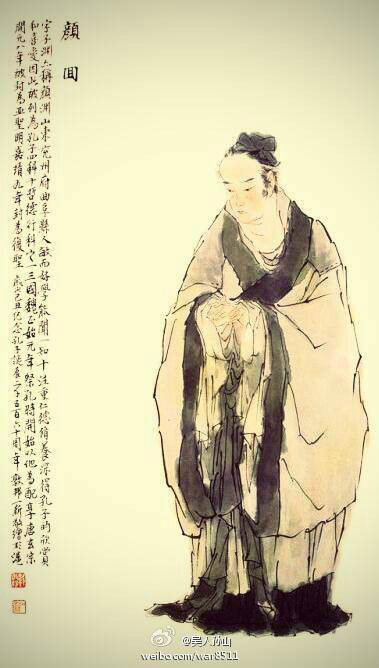 顔回
字子淵亦稱顔淵山東兗州府曲阜縣人敏而好學能聞一知十注重仁德修養深得孔子的欣賞
和喜愛因此被列為孔子四科十哲德行科之一三國魏正始元年祭孔時開始以他為配享唐玄宗
開元八年被封為亞聖明嘉靖九年封為復聖 歲己丑紀念孔子誕辰二千五百六十周年
@吴人孙山
weibo.com/war8511